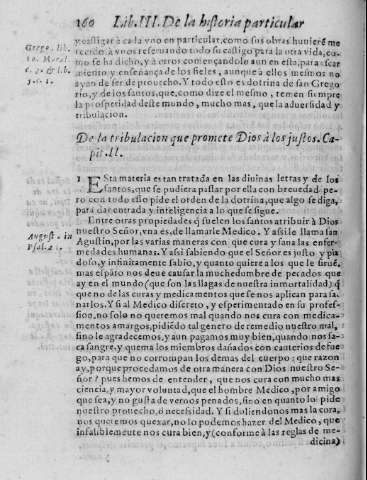 160 Lib. III. De la historia particular
y castigar à cada vno en particular, como sus obras huuierẽ me
recido à vnos reseruando todo su castigo para la otra vida, co-
mo se ha dicho, y à otros començandolo aun en esta, para escar
miento y enseñança de los fieles, aunque à ellos mesmos no
ayan de ser de prouecho. Y todo esto es dotrina de san Grego
rio, y de los santos, que, como dize el mesmo, temen siempre
la prosperidad deste mundo, mucho mas, que la aduersidad y
tribulacion.
Grego. lib.
10. Moral.
3. c. 1.
De la tribulacion que promete Dios à los justos. Ca-
pit. II.
1 ESta materia es tan tratada en las diuinas letras y de los
santos, que se pudiera passar por ella con breuedad pe-
ro con todo esso pide el orden de la dotrina, que algo se diga,
para dar entrada y inteligencia a lo que se sigue.
Entre otras propriedades q̃ suelen los santos atribuir à Dios
nuestro Señor, vna es, de llamarle Medico. Y assi le llama san
Agustin, por las varias maneras con que cura y sana las enfer-
medades humanas. Y assi sabiendo que el Señor es justo y pia
doso, y infinitamente sabio, y quanto quiere a los que le siruẽ,
mas espãto nos deue causar la muchedumbre de pecados que
ay en el mundo (que son las llagas de nuestra inmortalidad) q̃
que no de las curas y medicamentos que semos aplican para sa-
narlos. Y si al Medico discreto, y esperimentado en su profes-
sion, no solo no queremos mal quando nos cura con medica-
mentos amargos, pidiẽdo tal genero de remedio nuestro mal,
sino le agradecemos, y aun pagamos muy bien, quando nos sa-
ca sangre, y quema los miembros dañados con cauterios de fue
go, para que no corrompan los demas del cuerpo: que razon
ay, porque procedamos de otra manera con Dios nuestro Se-
ñor? pues hemos de entender, que nos cura con mucho mas
ciencia, y mayor voluntad, que el hombre Medico, por amigo
que sea, y no gusta de vernos penados, sino en quanto lo pide
nuestro prouecho, ò necessidad. Y si duliendonos mas la cora,
nos queremos quexar, no lo podemos hazer del Medico, que
infaliblemente nos cura bien, y (conforme à las reglas de me-
dicina)
August. in
Psal. 21.